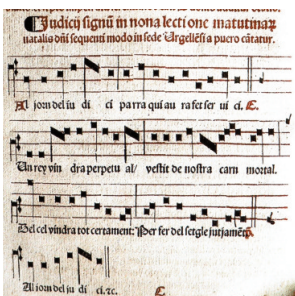 Judicij signũ in nona lectione matutinaꝝ
natalis dñi sequenti modo in sede Urgellẽsi a puero cãtatur.
Al jorn del iu di ci parra qui au ra fet ser ui ci. ℟.
Un rey vin dra perpetu al / vestit de nostra carn mortal.
Del cel vindra tot certament: Per fer del setgle jutjamẽt
Al jorn del ju di ci. ⁊c. ℟.